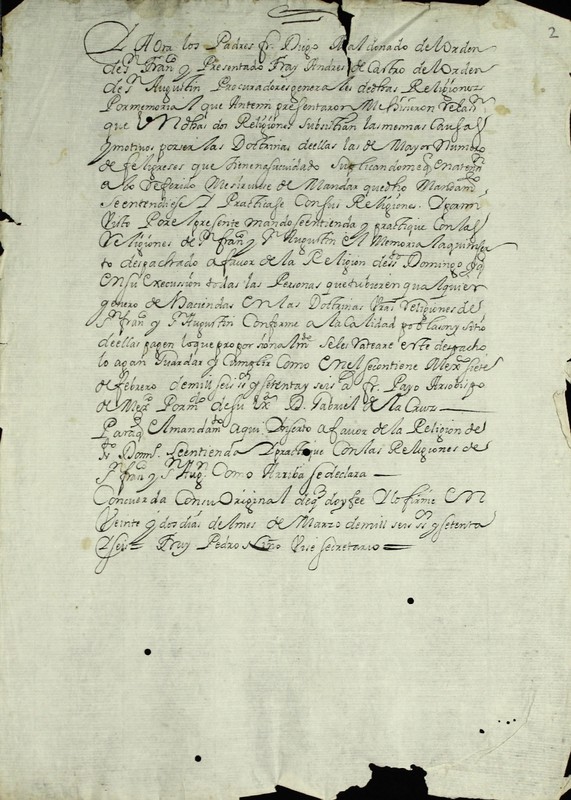 2
Y Aora los Padres fr. Diego Maldonado del orden
de Sn. Franco. y Presentado Fray Andres de Castro del orden
de Sn. Augustin Procuradores generales de dhas Religiones
Por memorial que Antemi presentaron Me hisieron Relasn.
que En dhas dos Religiones Subsistian las mesmas Causas
y motivos por ser las Doctrinas de ellas las de Mayor Numero
de feligreses que tienen a su cuidado Suplicandome q. en atensn.
a lo Referido Me siruiese de Mandar que dho Mandamto.
Se entendiese Y Practicase Con sus Religiones. Y por mi
Visto Por el presente mando se entienda y practique Con las
Religiones de Sn. franco. y Sn. Augustin el Memorial aqui inser
to despachado a favor de la Religion de Sto. Domingo Y q.
en su execussion todas las Personas que tubieren qualquier
genero de Haciendas En las Doctrinas
Sn. franco y Sn. Augustin Conforme a la Calidad poblason y sitio
de ellas pagen lo que proporsionalmte. se les rateare este despacho
lo agan Guardar y Cumplir Como en el se contiene Mexco. siete
de febrero de mill seis ss. y setenta y seis as. fr. Payo Arsobispo
de Mexco. Por mdo. de su Exa. D. Gabriel de la Cruz
Para q. el mandamto. aqui Inserto a favor de la Religion de
Sto. Domo. se entienda Y practique Con las Religiones de
Sn. franco y Sn. Augn. Como Arriba se declara
Concuerda Con su Original de q. doy fee Y lo firme En
Veinte y dos dias del mes de Marzo de mill seis ss. y setenta
Y seis Fray Pedro Niño Vise secretario